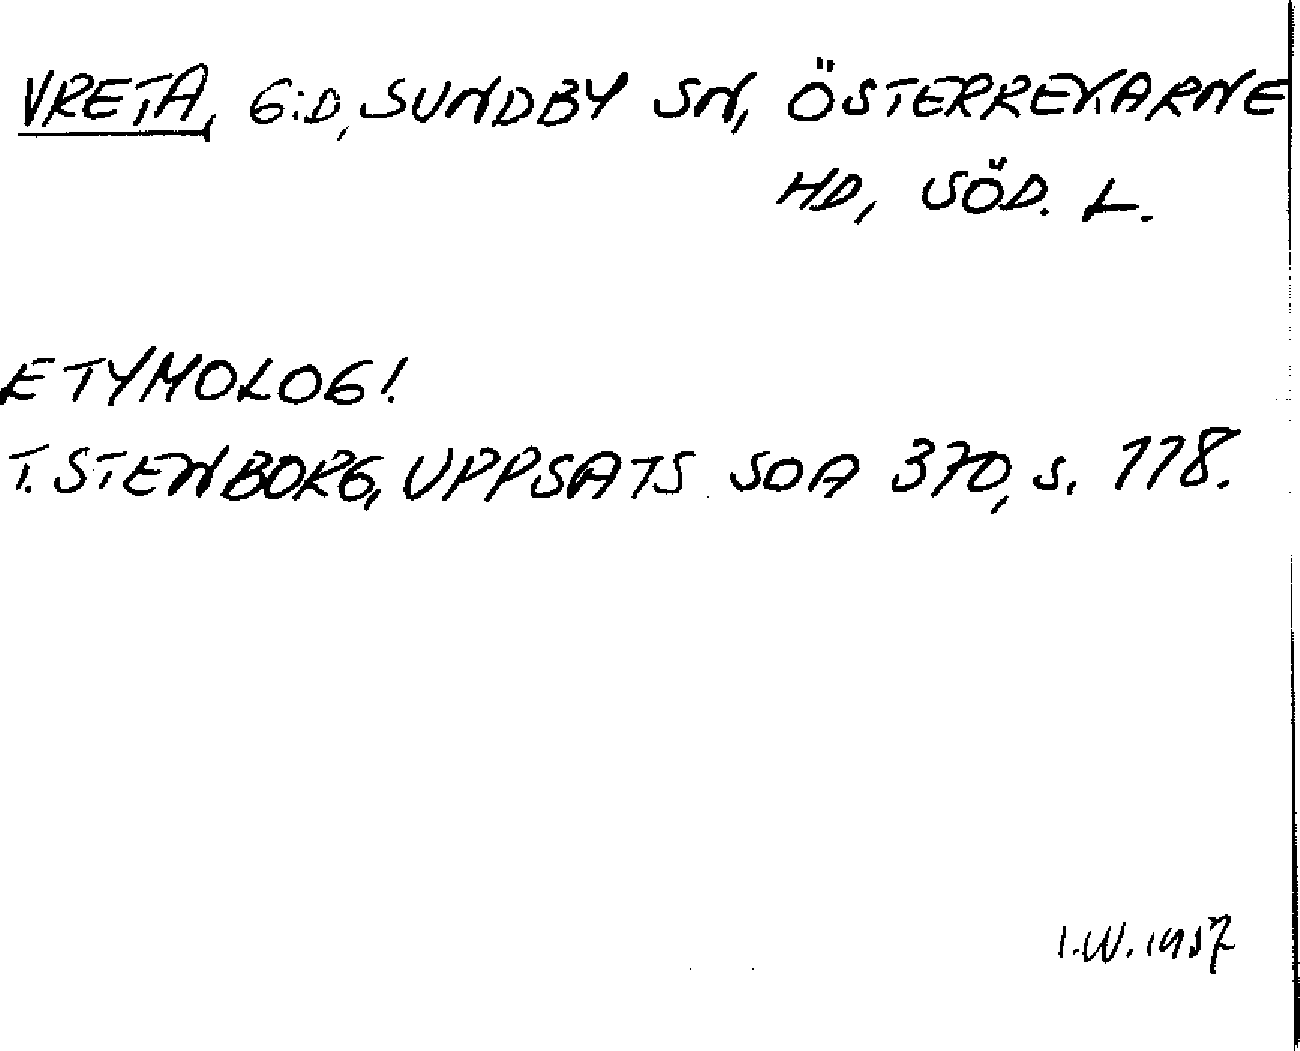 VRETA, G:D, SUNDBY SN, ÖSTERREKARNE
HD, SÖD. L.
ETYMOLOGI
T. STENBORG, UPPSATS SOA 370, S. 118.
I.W. 1957